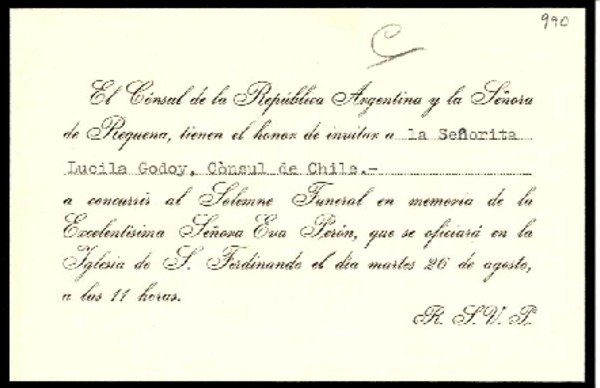 990
C
El Cónsul de la República Argentina y la Señora
de Requena, tienen el honor de invitar a la Señorita
Lucila Godoy, Cònsul de Chile.-
a concurrir al Solemne Funeral en memoria de la
Excelentísima Señora Eva Perón, que se oficiará en la
Iglesia de S. Ferdinando el día martes 26 de agosto,
a las 11 horas.
R. S. V. P.